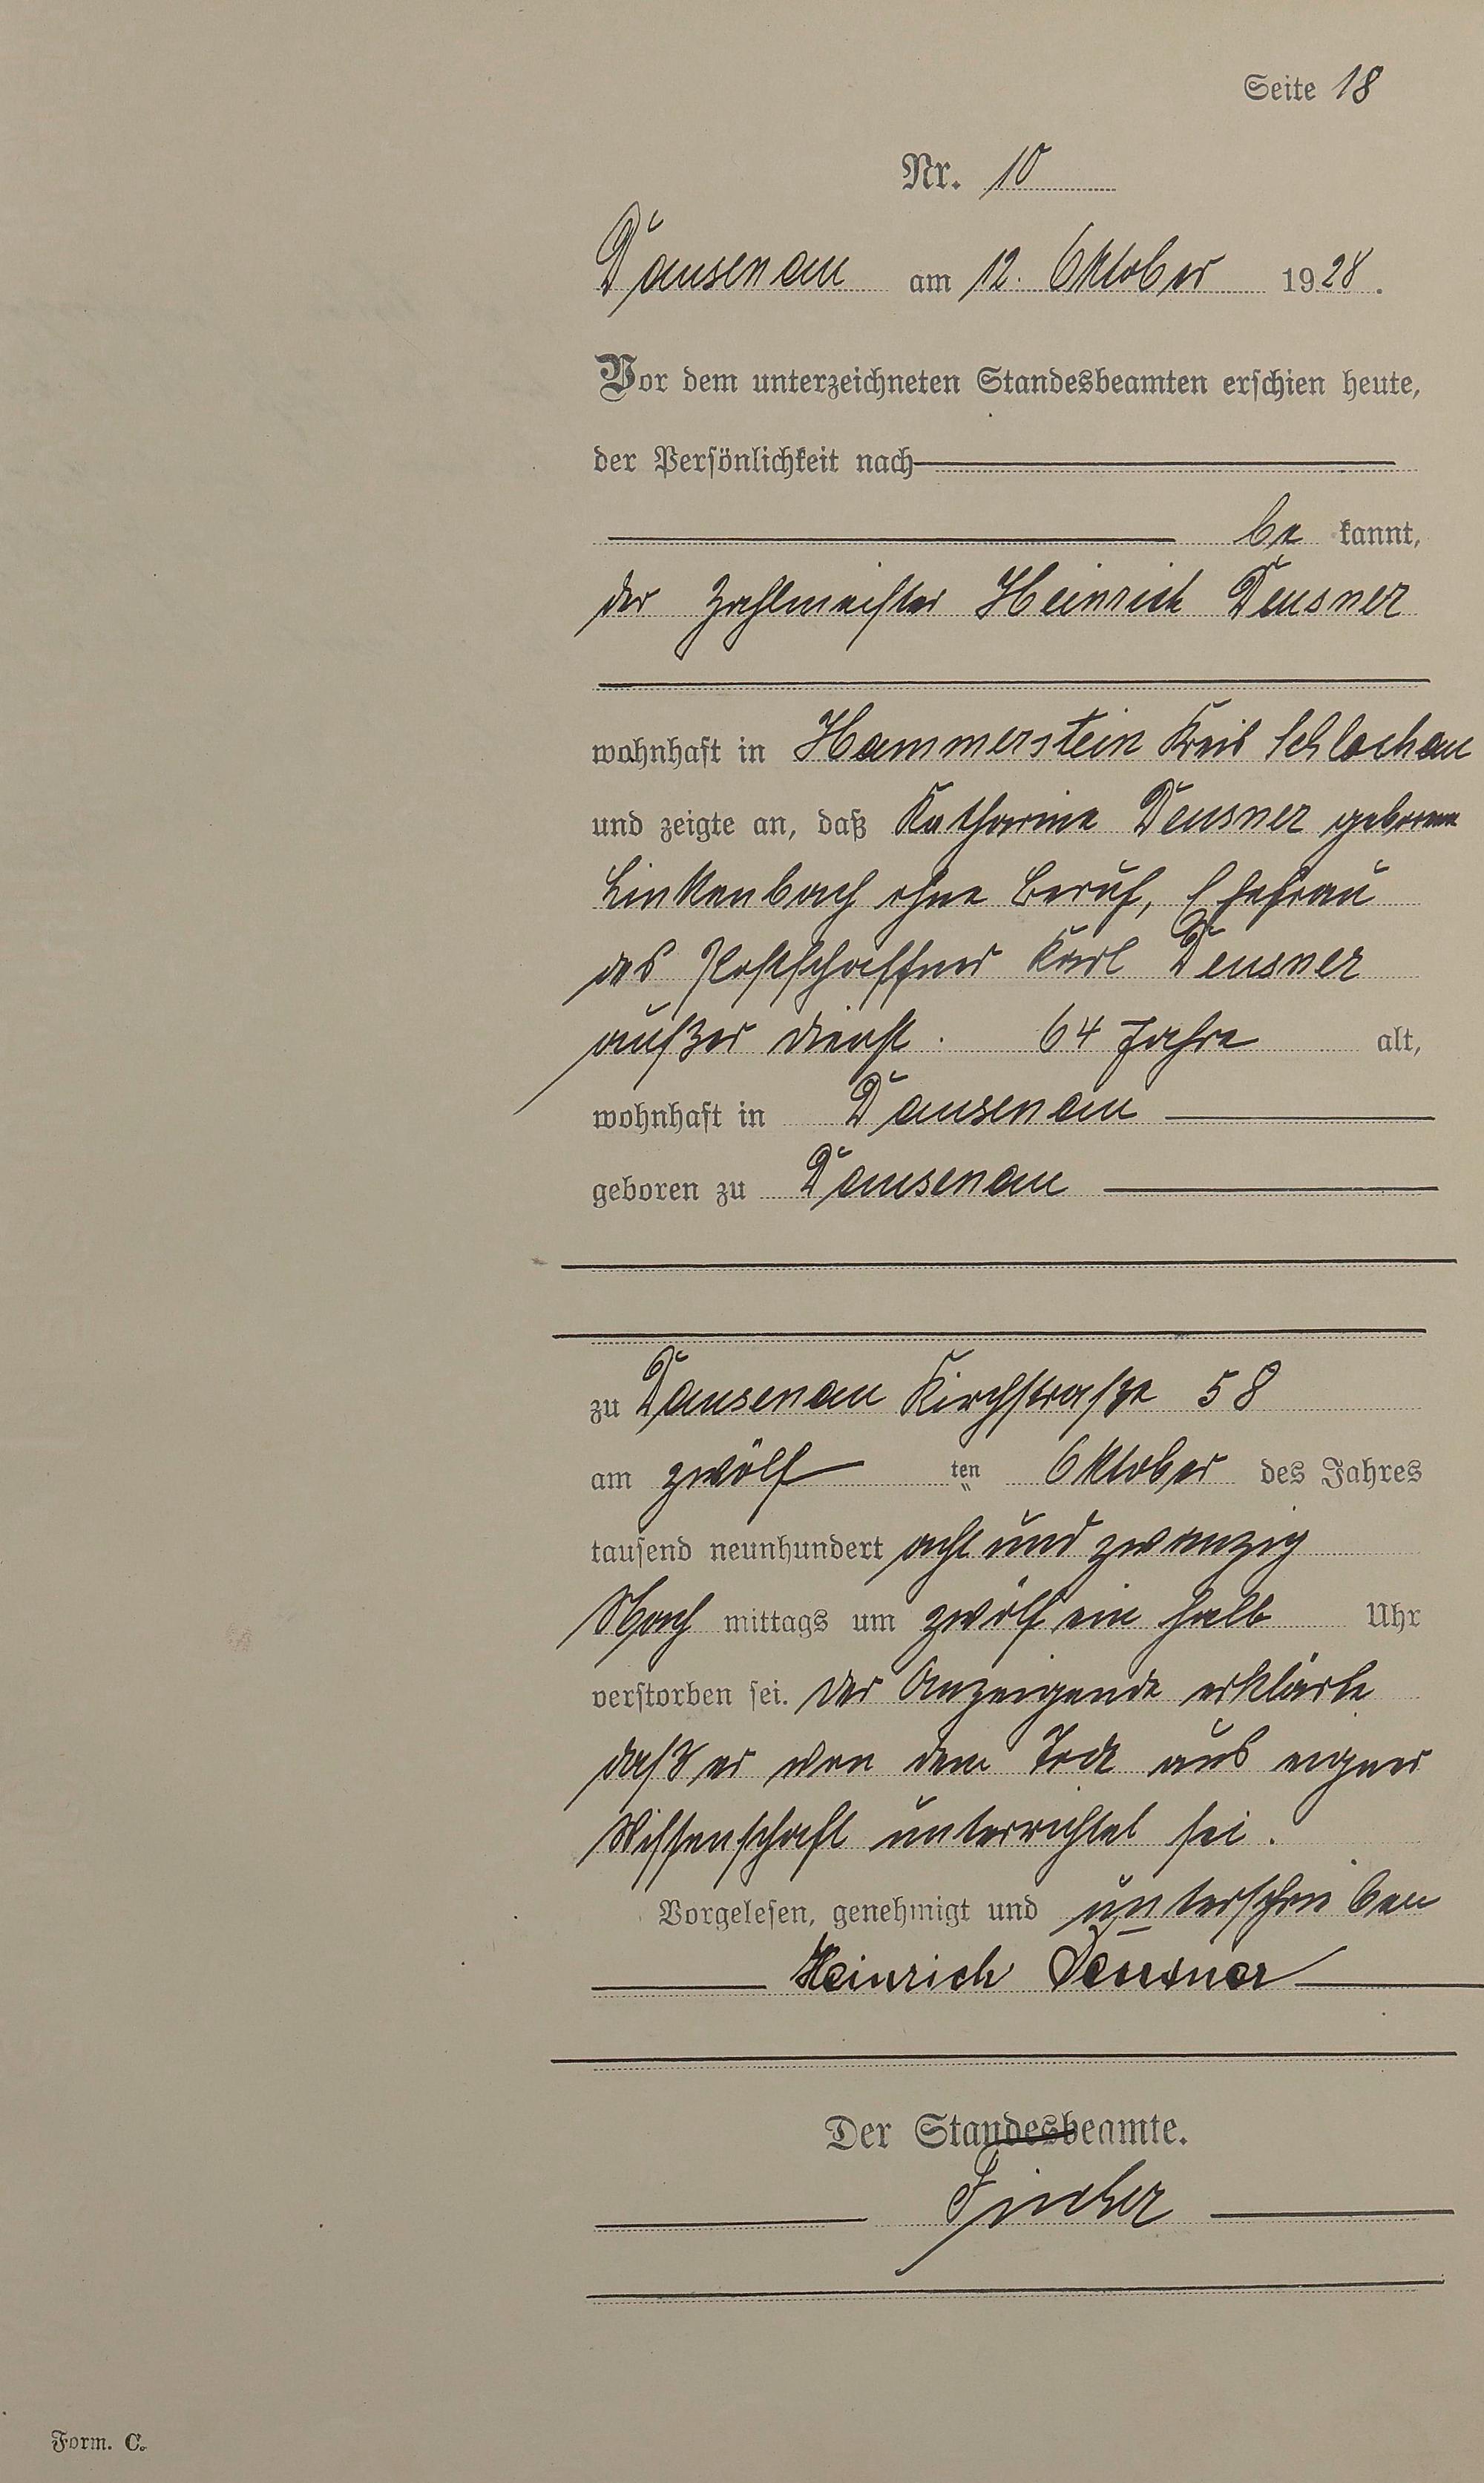 Seite 18
Nr. 10
Dausenau am 12. Oktober 1928.
Vor dem unterzeichneten Standesbeamten erschien heute,
der Persönlichkeit nach
be kannt,
der Zahlmeister Heinrich Deusner
wohnhaft in Hammerstein Kreis Schlochau
und zeigte an, daß Katharine Deusner geborene
Linkenbach ohne Beruf, Ehefrau
des Postschaffner Karl Deusner
außer Dienst. 64 Jahre alt,
wohnhaft in Dausenau
geboren zu Dausenau
zu Dausenau Kirchstraße 58
am zwölf ten Oktober des Jahres
tausend neunhundert acht und zwanzig
Nach mittags um zwölf ein halb Uhr
verstorben sei. Der Anzeigende erklärte
daß er von dem Tode aus eigner
Wissenschaft unterrichtet sei.
Vorgelesen, genehmigt und unterschrieben
Heinrich Deusner
Der Standesbeamte.
Form. C.